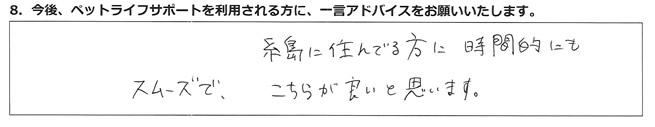 8. 今後、ペットライフサポートを利用される方に、一言アドバイスをお願いいたします。
糸島に住んでる方に 時間的にも
スムーズで、 こちらが良いと思います。